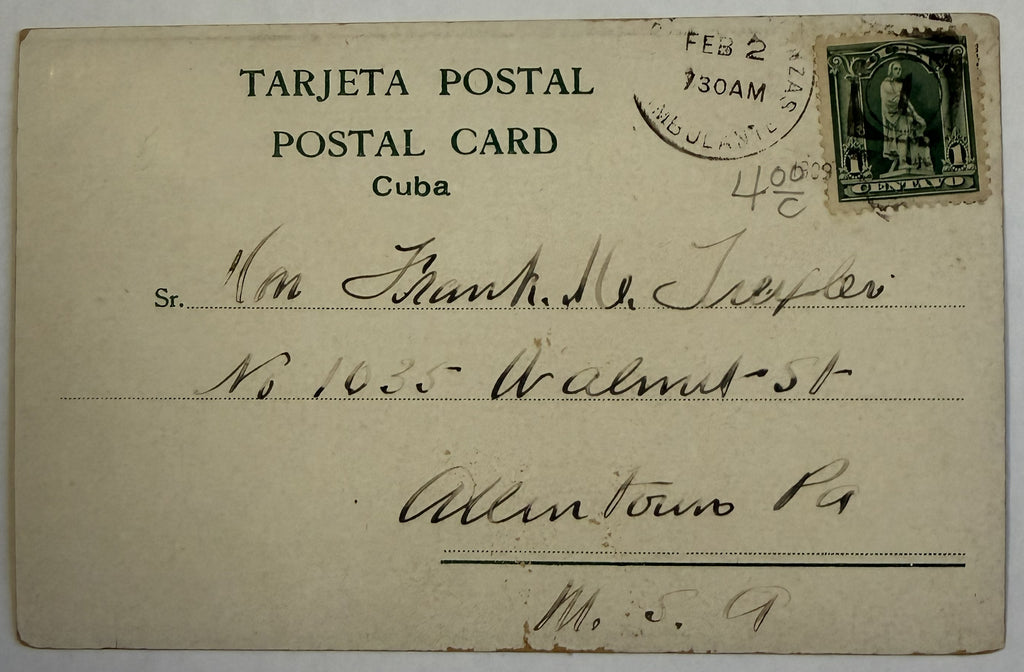 FEB 2
730AM
AMBULANTE
TARJETA POSTAL
POSTAL CARD
Cuba
1 1
CENTAVO
4 00/c
1909
Sr. Hon Frank. M. Trexler
No 1035 Walnut St
Allentown Pa
U. S. A